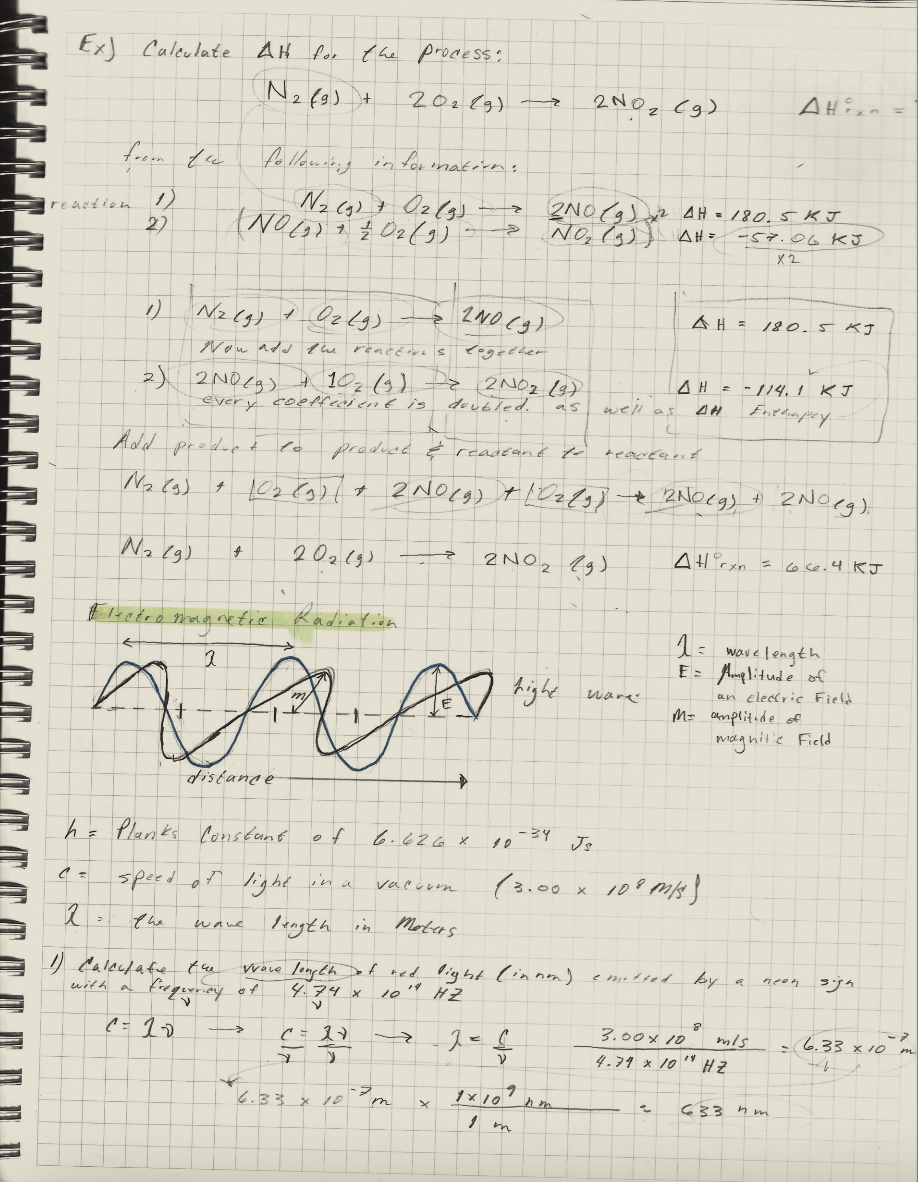 Ex) Calculate ΔH for the process:
N₂(g) + 2O₂(g) → 2NO₂(g) ΔH°rxn =
from the following information:
reaction 1) N₂(g) + O₂(g) → 2NO(g) x2 ΔH = 180.5 KJ
2) (NO(g) + ½O₂(g) → NO₂(g)) ΔH = -57.06 KJ
x2
1) N₂(g) + O₂(g) → 2NO(g) ΔH = 180.5 KJ
Now add the reactions together
2) 2NO(g) + 1O₂(g) → 2NO₂(g) ΔH = -114.1 KJ
every coeffecient is doubled. as well as ΔH Enthapey
Add product to product & reactant to reactant
N₂(g) + O₂(g) + 2NO(g) + O₂(g) → 2NO(g) + 2NO(g)
N₂(g) + 2O₂(g) → 2NO₂(g) ΔH°rxn = 66.4 KJ
Electromagnetic Radiation
λ
m
E
light wave
distance
λ = wavelength
E = Amplitude of
an electric Field
M = amplitude of
magnitic Field
h = Planks Constant of 6.626 x 10⁻³⁴ Js
c = speed of light in a vacuum (3.00 x 10⁸ M/s)
λ = the wave length in Meters
1) Calculate the wave length of red light (in nm) emitted by a neon sign
with a frequency of 4.74 x 10¹⁴ HZ
ν ν
c = λν → c/ν = λν/ν → λ = c/ν 3.00 x 10⁸ m/s / 4.74 x 10¹⁴ HZ = 6.33 x 10⁻⁷ m
6.33 x 10⁻⁷ m x 1x10⁹ nm / 1 m = 633 nm